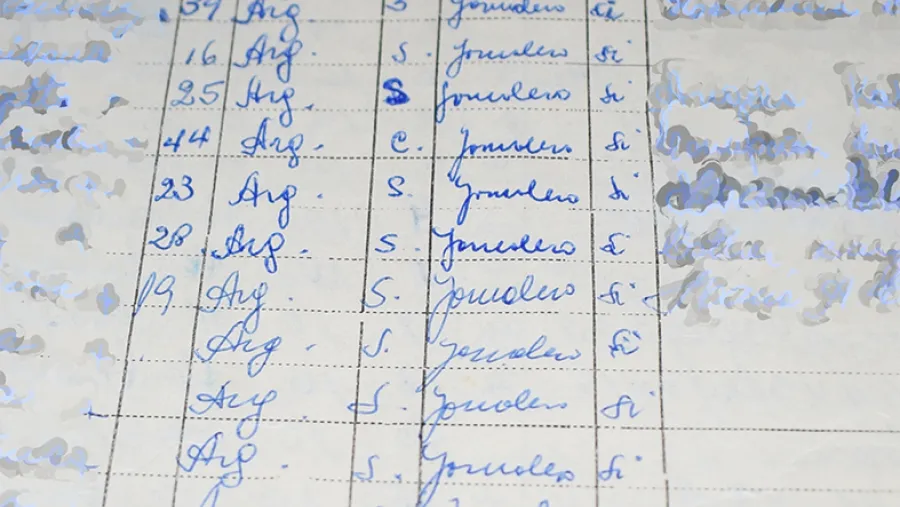 Arg. S Jornalero si
16 Arg. S. Jornalero si
25 Arg. S Jornalero si
44 Arg. C. Jornalero si
23 Arg. S. Jornalero si
28 Arg. S. Jornalero si
19 Arg. S. Jornalero si
Arg. S. Jornalero si
Arg. S. Jornalero si
Arg. S. Jornalero si